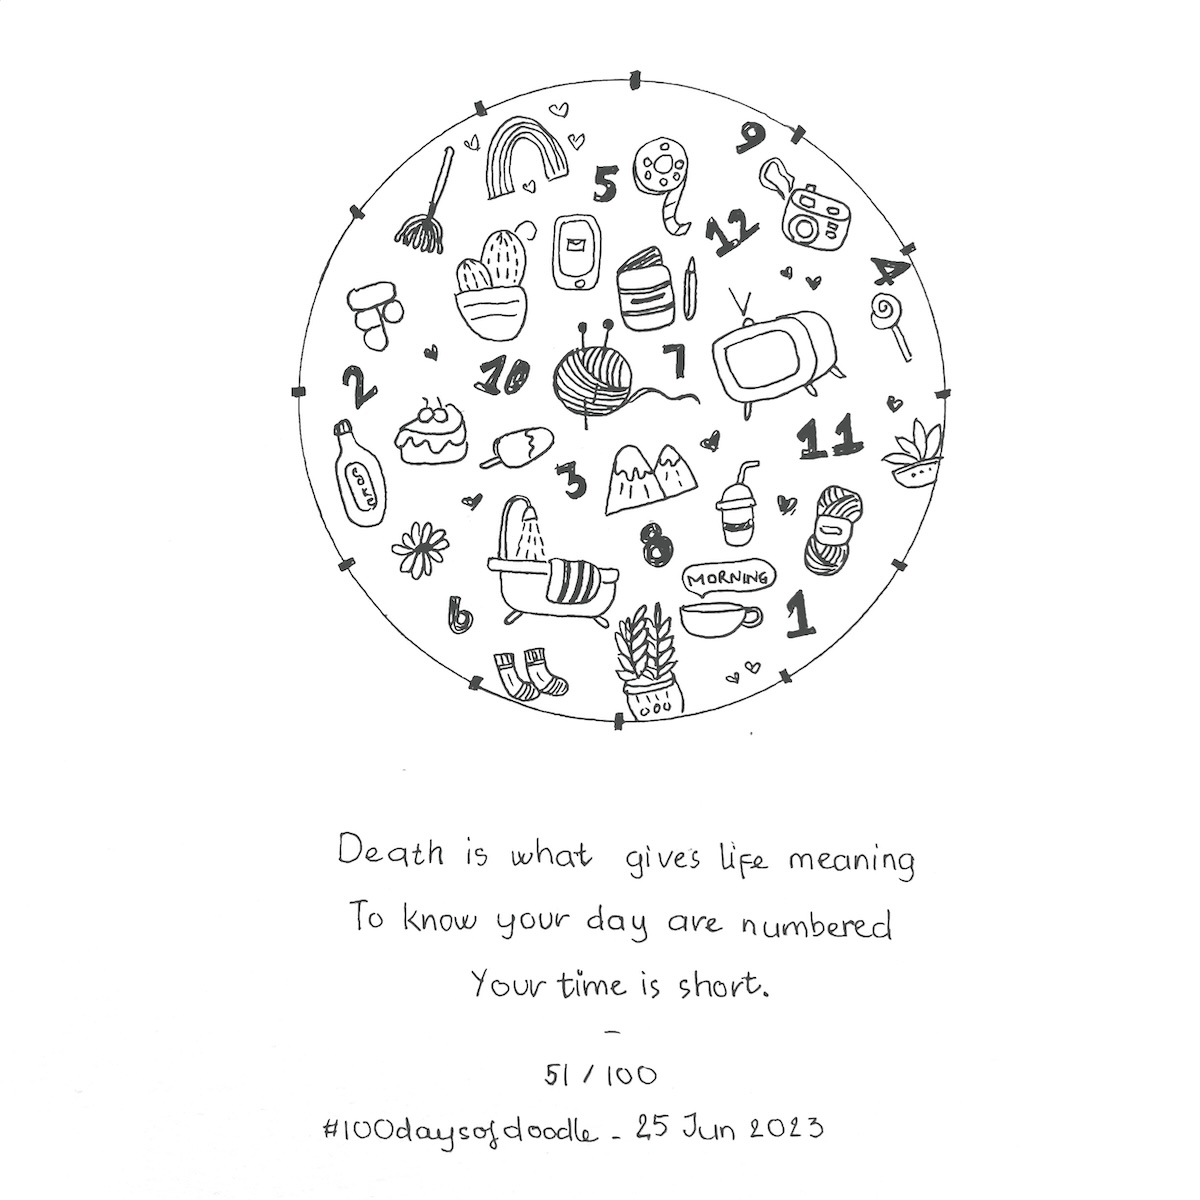 9
5
12
4
7
10
2
11
3
8
MORNING
6
1
Death is what gives life meaning
To know your day are numbered
Your time is short.
–
51 / 100
#100daysofdoodle - 25 Jun 2023